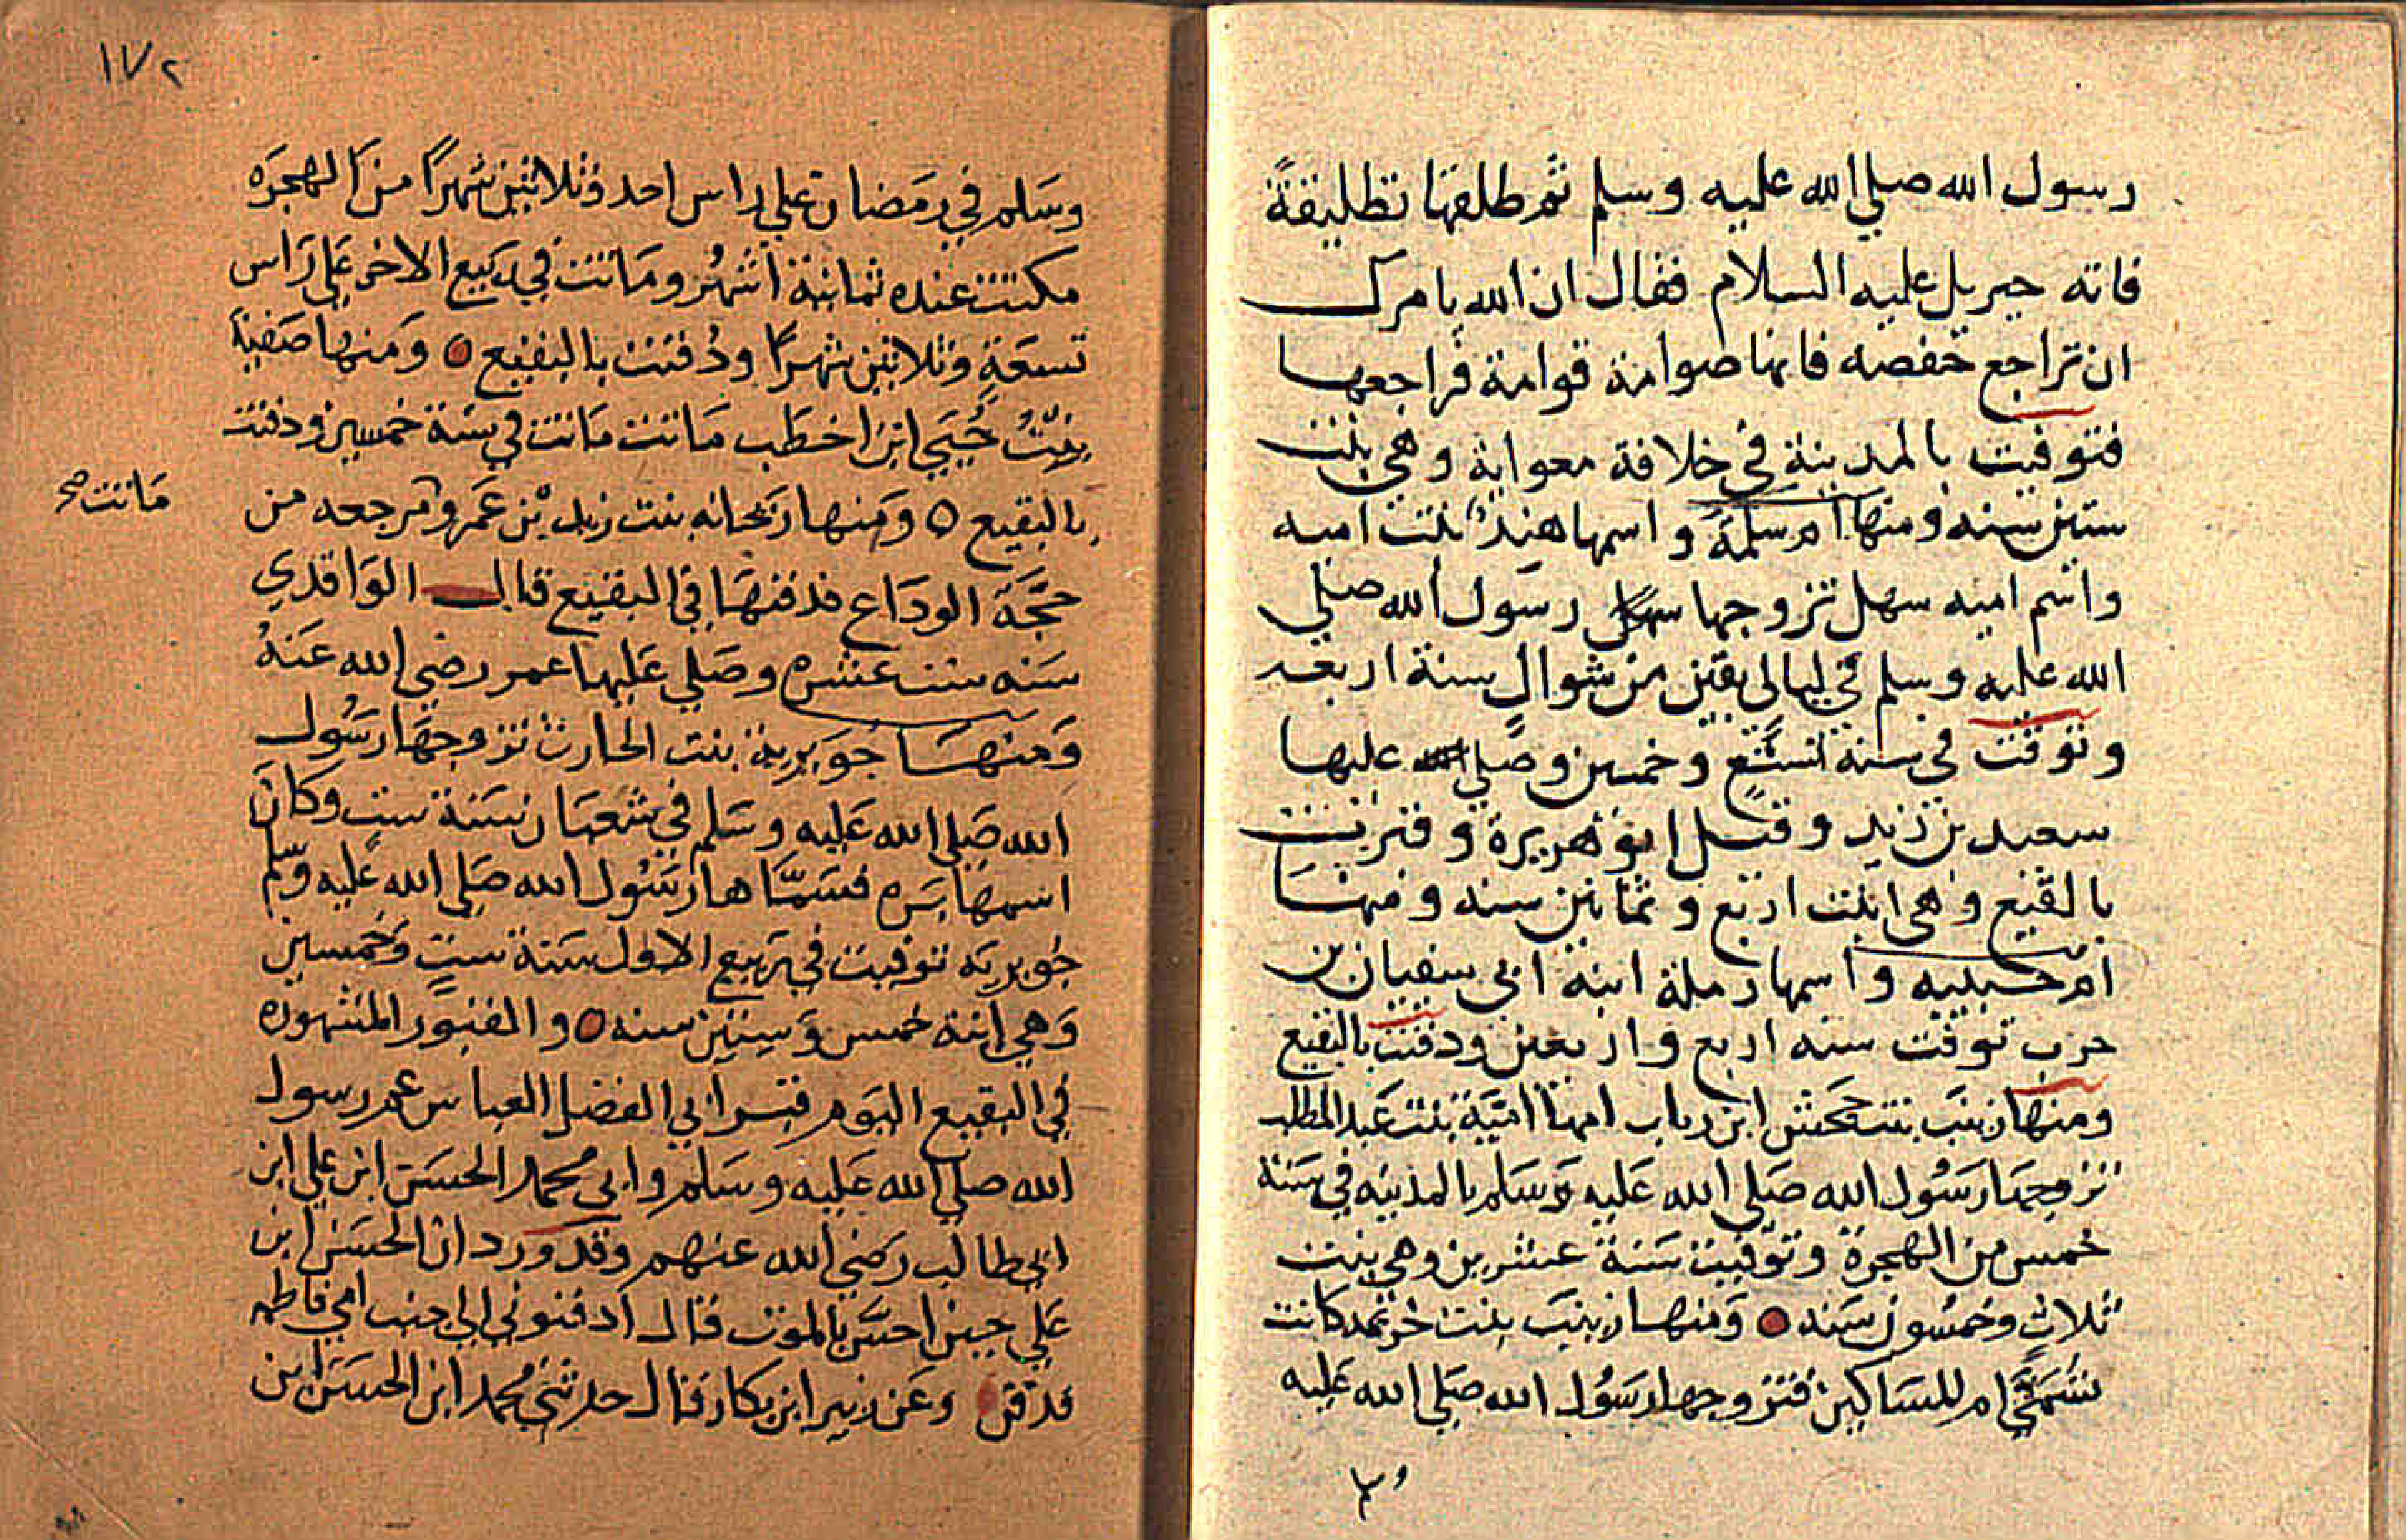 رسول الله صلي الله عليه وسلم ثم طلقها تطليقة
فاته جبريل عليه السلام فقال ان الله يامرك
ان تراجع حفصه فانها صوامة قوامة فراجعها
فتوفيت بالمدينة في خلافة معواية وهي بنت
ستين سنه ومنها ام سلمة واسمها هند بنت اميه
واسم اميه سهل تزوجها رسول الله صلي
الله عليه وسلم في ليالى بقين من شوال سنة اربعه
وتوفت في سنة تسع وخمسين وصلي عليها
سعيد بن زيد وقيل ابو هريرة وقبرت
بالبقيع وهي ابنت اربع وثمانين سنه ومنها
ام حبيبه واسمها رملة ابنة ابي سفيان بن
حرب توفت سنه اربع واربعين ودفنت بالبقيع
ومنها زينب بنت جحش ابن رباب امها اميّة بنت عبد المطلب
تزوجها رسول الله صلي الله عليه وسلم بالمدينه في سنة
خمس من الهجرة وتوفيت سنة عشرين وهي بنت
ثلاث وخمسون سنه ومنها زينب بنت خزيمه كانت
تسمي ام للمساكين فتزوجها رسول الله صلي الله عليه
١٧٢
وسلم في رمضان علي راس احد وثلاثين شهرا من الهجره
مكثت عنده ثمانية اشهر وماتت في ربيع الاخر علي راس
تسعة وثلاثين شهرا ودفنت بالبقيع ومنها صفية
بنت حيي ابن اخطب ماتت ماتت في سنة خمسين ودفنت
بالبقيع ومنها ريحانه بنت زيد بن عمرو مرجعه من
ماتت صح
حجة الوداع فدفنها في البقيع قال الواقدي
سنه ست عشره وصلي عليها عمر رضي الله عنه
ومنها جويرية بنت الحارث تزوجها رسول
الله صلي الله عليه وسلم في شعبان سنة ست وكان
اسمها بره فسمّاها رسول الله صلي الله عليه وسلم
جويريه توفيت في ربيع الاول سنة ست وخمسين
وهي ابنة خمس وستين سنه والقبور المشهوره
في البقيع اليوم قبر ابي الفضل العباس عم رسول
الله صلي الله عليه وسلم وابي محمد الحسن ابن علي ابن
ابي طالب رضي الله عنهم وقد ورد ان الحسن ابن
علي حين احس بالموت قال ادفنوني الي جنب امي فاطمه
فدفن وعن زبير ابن بكار قال حدثني محمد ابن الحسن ابن